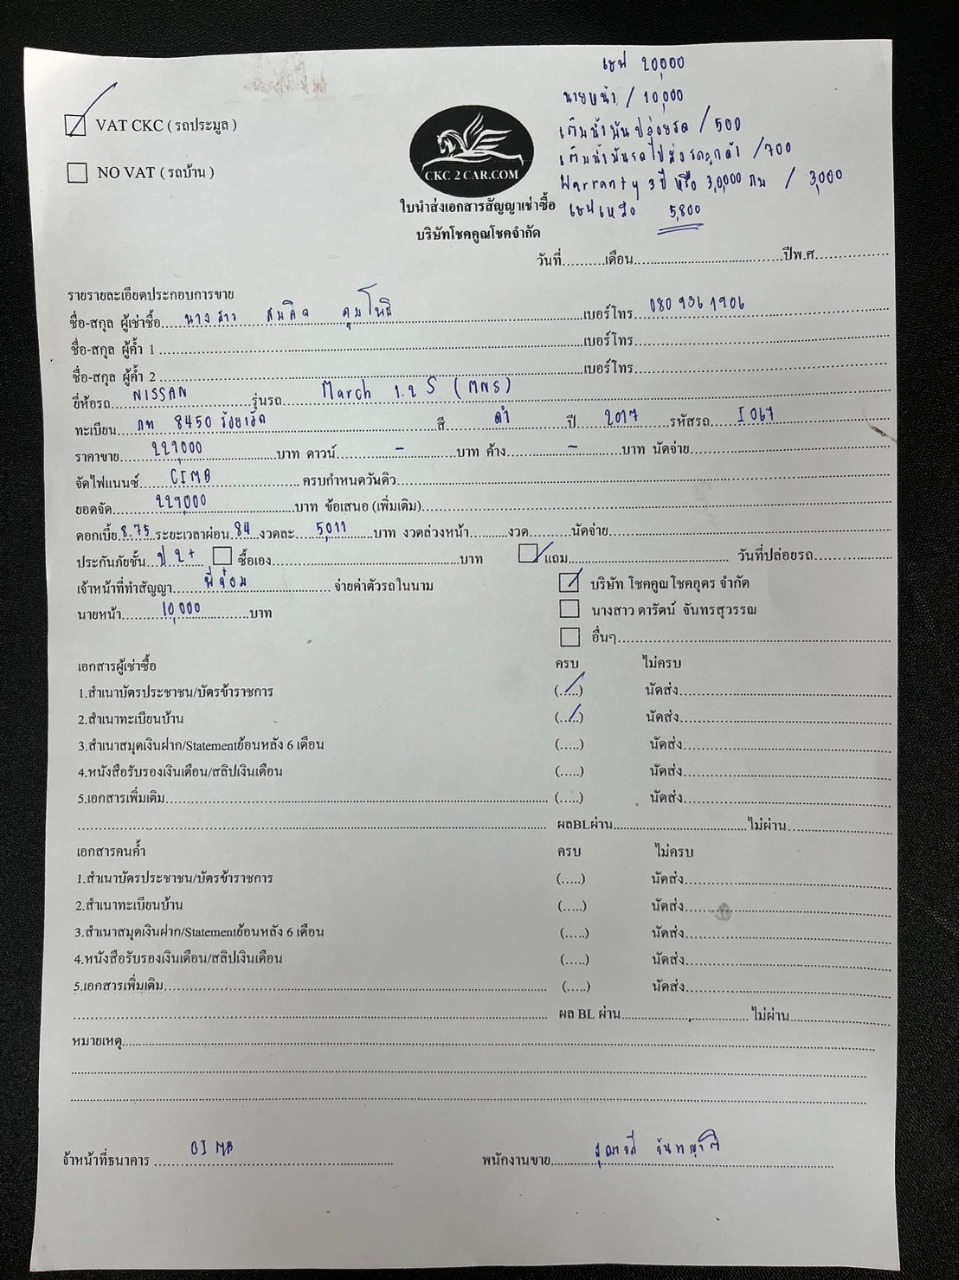 เซฟ 20,000
นายหน้า / 10,000
เติมน้ำมันปล่อยรถ / 500
เติมน้ำมันรถไปส่งรถลูกค้า / 700
Warranty 3 ปี หรือ 30,000 กม / 3,000
เซฟเหลือ 5,800
VAT CKC ( รถประมูล )
NO VAT ( รถบ้าน )
CKC 2 CAR.COM
ใบนำส่งเอกสารสัญญาเช่าซื้อ
บริษัทโชคคูณโชคจำกัด
วันที่..........เดือน........................................ปีพ.ศ....................
รายรายละเอียดประกอบการขาย
ชื่อ-สกุล ผู้เช่าซื้อ....นางสาว สมคิด คุมโพธิ์....เบอร์โทร 080 9361906
ชื่อ-สกุล ผู้ค้ำ 1 ............................................เบอร์โทร....................
ชื่อ-สกุล ผู้ค้ำ 2 ............................................เบอร์โทร....................
ยี่ห้อรถ....NISSAN....รุ่นรถ....March 1.2 S (MNS)
ทะเบียน กท 8450 ร้อยเอ็ด สี ดำ ปี 2017 รหัสรถ I067
ราคาขาย 229,000 บาท ดาวน์ - บาท ค้าง - บาท นัดจ่าย....................
จัดไฟแนนซ์ CIMB ครบกำหนดวันคิว....................
ยอดจัด 229,000 บาท ข้อเสนอ (เพิ่มเติม)....................
ดอกเบี้ย 8.75 ระยะเวลาผ่อน 84 งวดละ 5,011 บาท งวดล่วงหน้า..........งวด........นัดจ่าย....................
ประกันภัยชั้น ป 2+ ซื้อเอง....................บาท แถม.................... วันที่ปล่อยรถ..........
เจ้าหน้าที่ทำสัญญา พี่จ๋อม จ่ายค่าตัวรถในนาม บริษัท โชคคูณโชคอุดร จำกัด
นายหน้า 10,000 บาท นางสาว ดารัตน์ จันทรสุวรรณ
อื่นๆ....................
เอกสารผู้เช่าซื้อ ครบ ไม่ครบ
1.สำเนาบัตรประชาชน/บัตรข้าราชการ (../..) นัดส่ง....................
2.สำเนาทะเบียนบ้าน (../..) นัดส่ง....................
3.สำเนาสมุดเงินฝาก/Statementย้อนหลัง 6 เดือน (.....) นัดส่ง....................
4.หนังสือรับรองเงินเดือน/สลิปเงินเดือน (.....) นัดส่ง....................
5.เอกสารเพิ่มเติม.................... (.....) นัดส่ง....................
.................... ผลBLผ่าน....................ไม่ผ่าน....................
เอกสารคนค้ำ ครบ ไม่ครบ
1.สำเนาบัตรประชาชน/บัตรข้าราชการ (.....) นัดส่ง....................
2.สำเนาทะเบียนบ้าน (.....) นัดส่ง....................
3.สำเนาสมุดเงินฝาก/Statementย้อนหลัง 6 เดือน (.....) นัดส่ง....................
4.หนังสือรับรองเงินเดือน/สลิปเงินเดือน (.....) นัดส่ง....................
5.เอกสารเพิ่มเติม.................... (.....) นัดส่ง....................
.................... ผล BL ผ่าน....................ไม่ผ่าน....................
หมายเหตุ....................
จ้าหน้าที่ธนาคาร CIMB พนักงานขาย....................